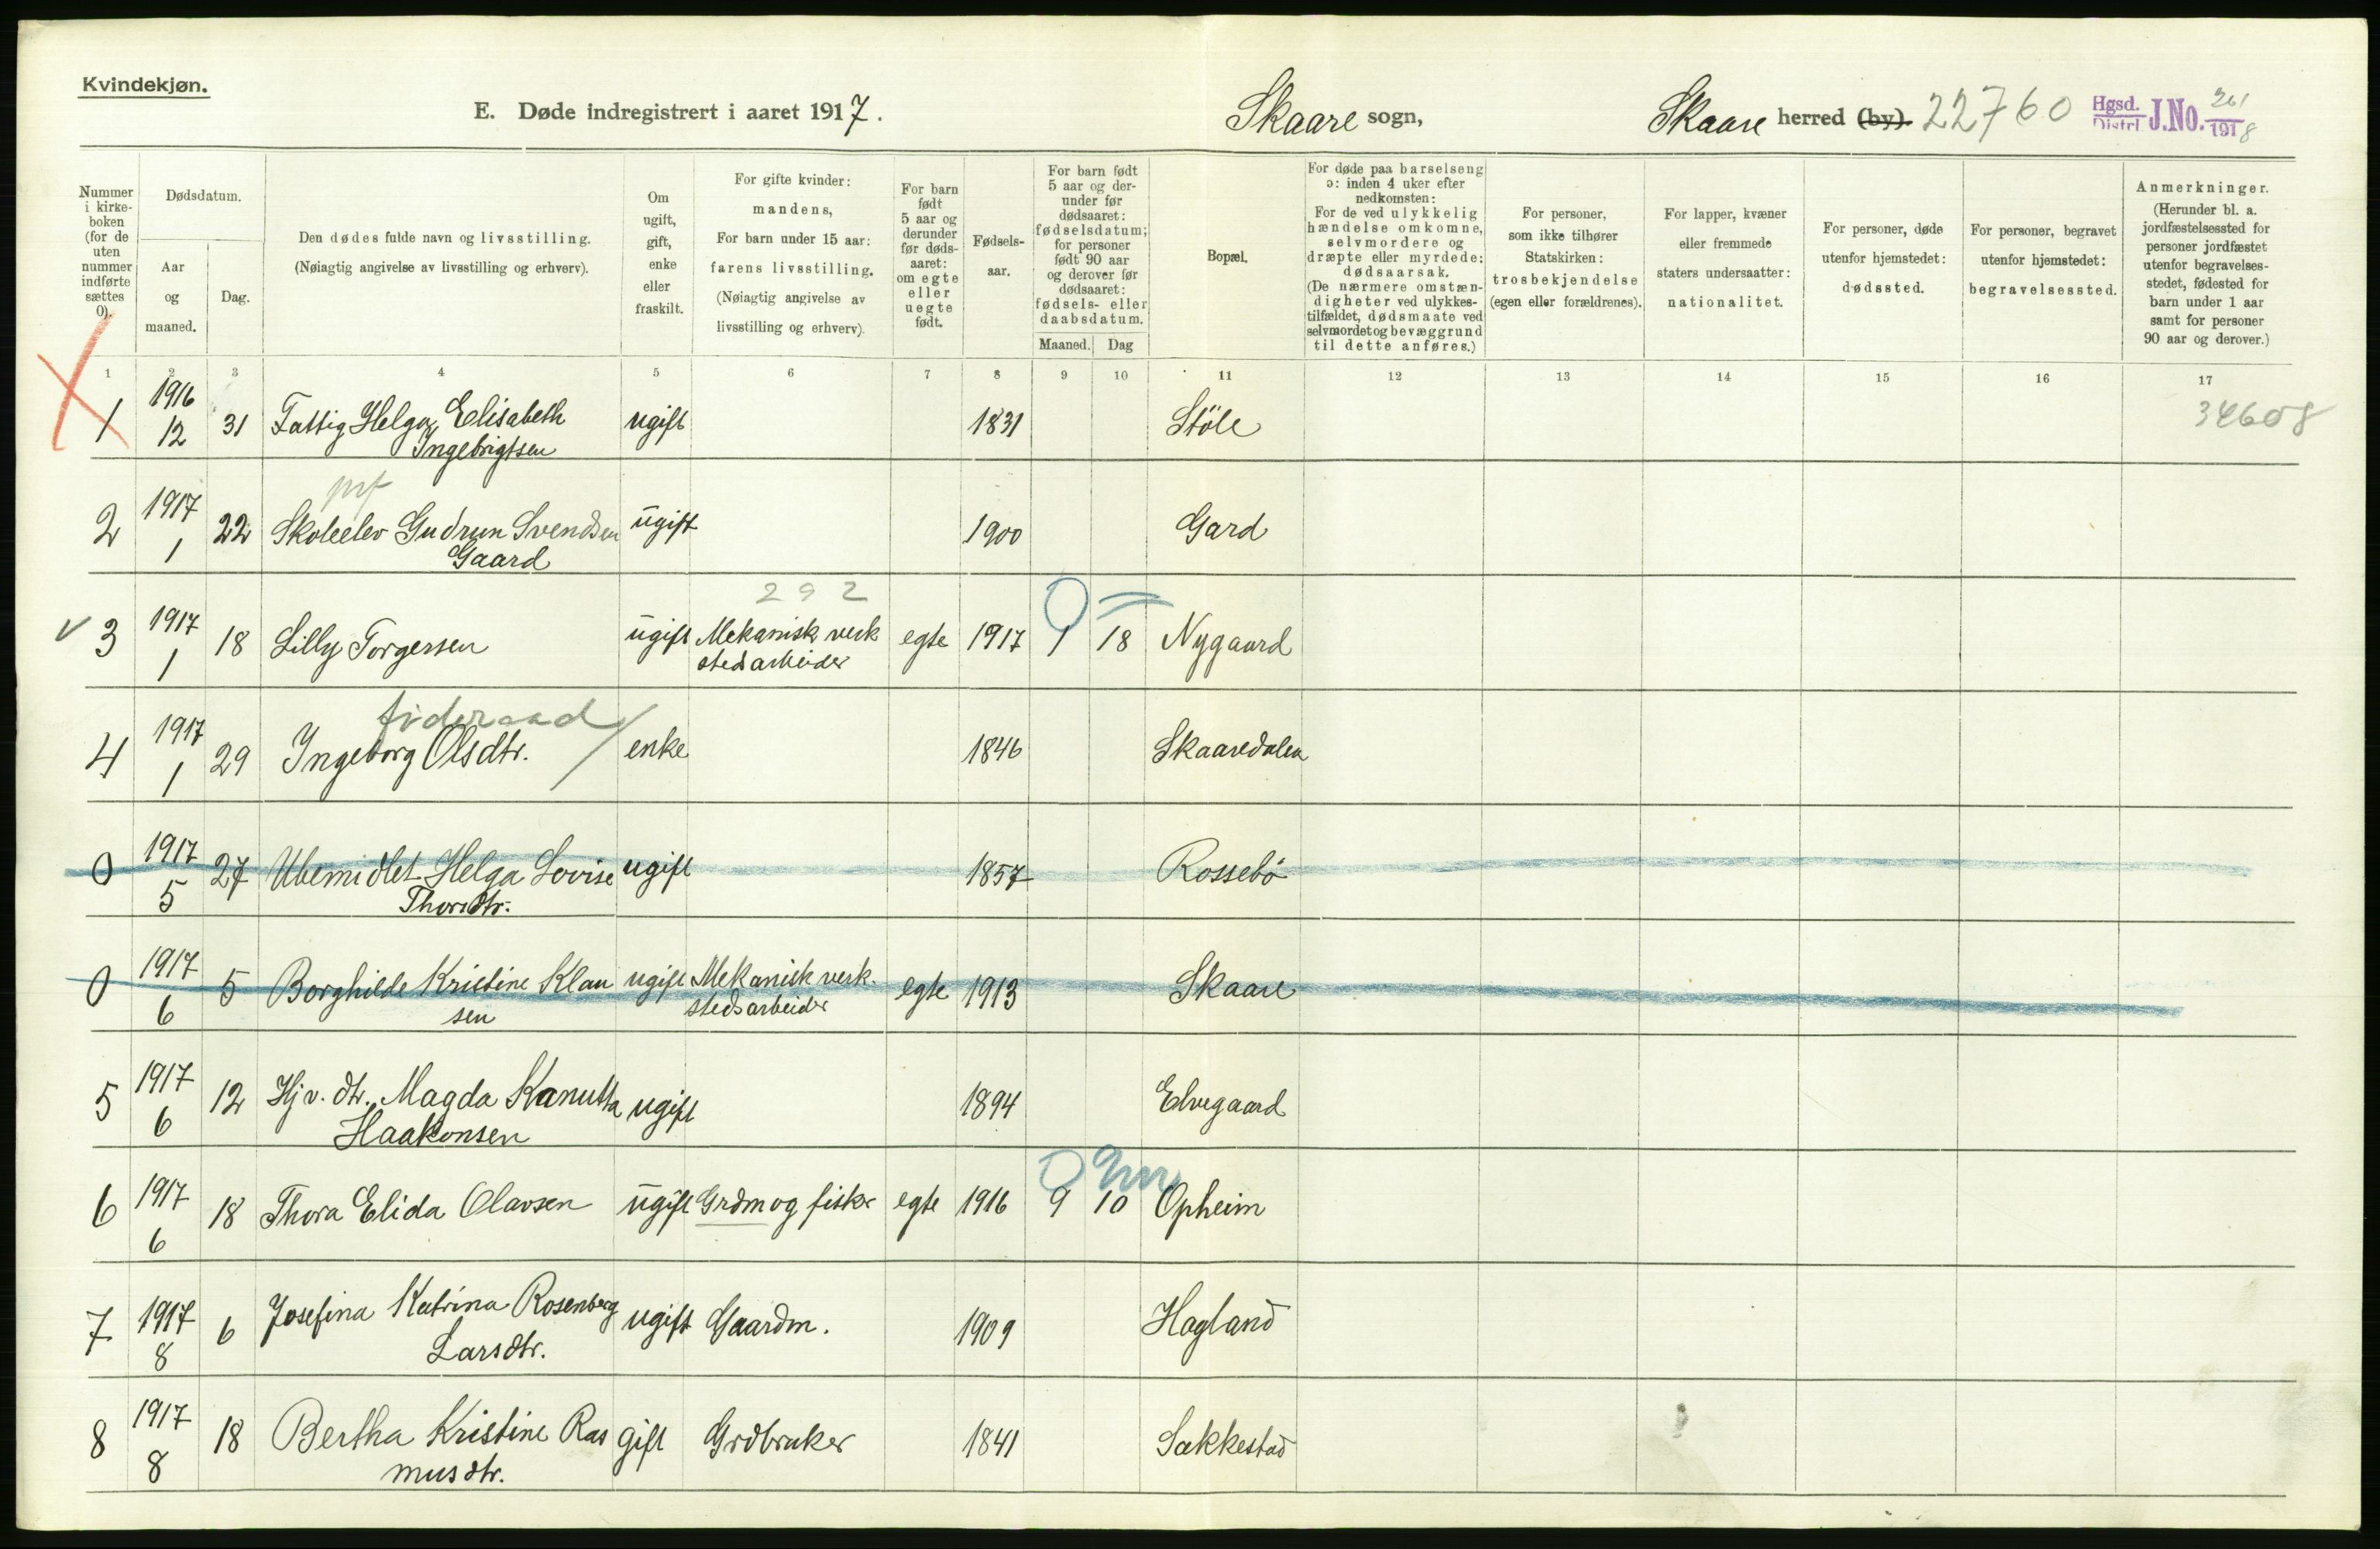 Kvindekjøn.
E. Døde indregistrert i aaret 1917.
Skaare sogn,
Skaare herred (by). 22760
Hgsd. Distrl J.No. 261 1918
Nummer i kirke- boken (for de uten nummer indførte sættes 0).
Dødsdatum.
Aar og maaned.
Dag.
Den dødes fulde navn og livsstilling.
(Nøiagtig angivelse av livsstilling og erhverv).
Om ugift, gift, enke eller fraskilt.
For gifte kvinder:
mandens,
For barn under 15 aar:
farens livsstilling.
(Nøiagtig angivelse av
livsstilling og erhverv).
For barn født 5 aar og derunder før døds- aaret: om egte eller uegte født.
Fødsels- aar.
For barn født 5 aar og der- under før dødsaaret: fødselsdatum; for personer født 90 aar og derover før dødsaaret: fødsels- eller daabsdatum.
Maaned. Dag
Bopæl.
For døde paa barselseng
ɔ: inden 4 uker efter
nedkomsten:
For de ved ulykkelig
hændelse omkomne,
selvmordere og
dræpte eller myrdede:
dødsaarsak.
(De nærmere omstæn-
digheter ved ulykkes-
tilfældet, dødsmaate ved
selvmordet og bevæggrund
til dette anføres.)
For personer,
som ikke tilhører
Statskirken:
trosbekjendelse
(egen eller forældrenes).
For lapper, kvæner
eller fremmede
staters undersaatter:
nationalitet.
For personer, døde
utenfor hjemstedet:
dødssted.
For personer, begravet
utenfor hjemstedet:
begravelsessted.
Anmerkninger.
(Herunder bl. a.
jordfæstelsessted for
personer jordfæstet
utenfor begravelses-
stedet, fødested for
barn under 1 aar
samt for personer
90 aar og derover.)
1 2 3 4 5 6 7 8 9 10 11 12 13 14 15 16 17
1 1916 12 31 Fattig Helga Elisabeth Ingebrigtsen ugift 1831 Støle 34608
2 1917 1 22 Skoleelev Gudrun Svendsen Gaard ugift 1900 Gard
292
3 1917 1 18 Lilly Torgersen ugift Mekanisk verk stedsarbeider egte 1917 1 18 Nygaard
føderaad
4 1917 1 29 Ingeborg Olsdtr. enke 1846 Skaaredalen
0 1917 5 27 Ubemidlet Helga Lovise Thorsdtr. ugift 1857 Rossebø
0 1917 6 5 Borghilde Kristine Klau sen ugift Mekanisk verk. stedsarbeider egte 1913 Skaare
5 1917 6 12 Hjv. dtr. Magda Kanutta Haakonsen ugift 1894 Elvegaard
0 9m
6 1917 6 18 Thora Elida Olavsen ugift Grdm og fisker egte 1916 9 10 Opheim
7 1917 8 6 Josefina Katrina Rosenberg Larsdtr. ugift Gaardm. 1909 Hagland
8 1917 8 18 Bertha Kristine Ras musdtr. gift Grdbruker 1841 Sakkestad